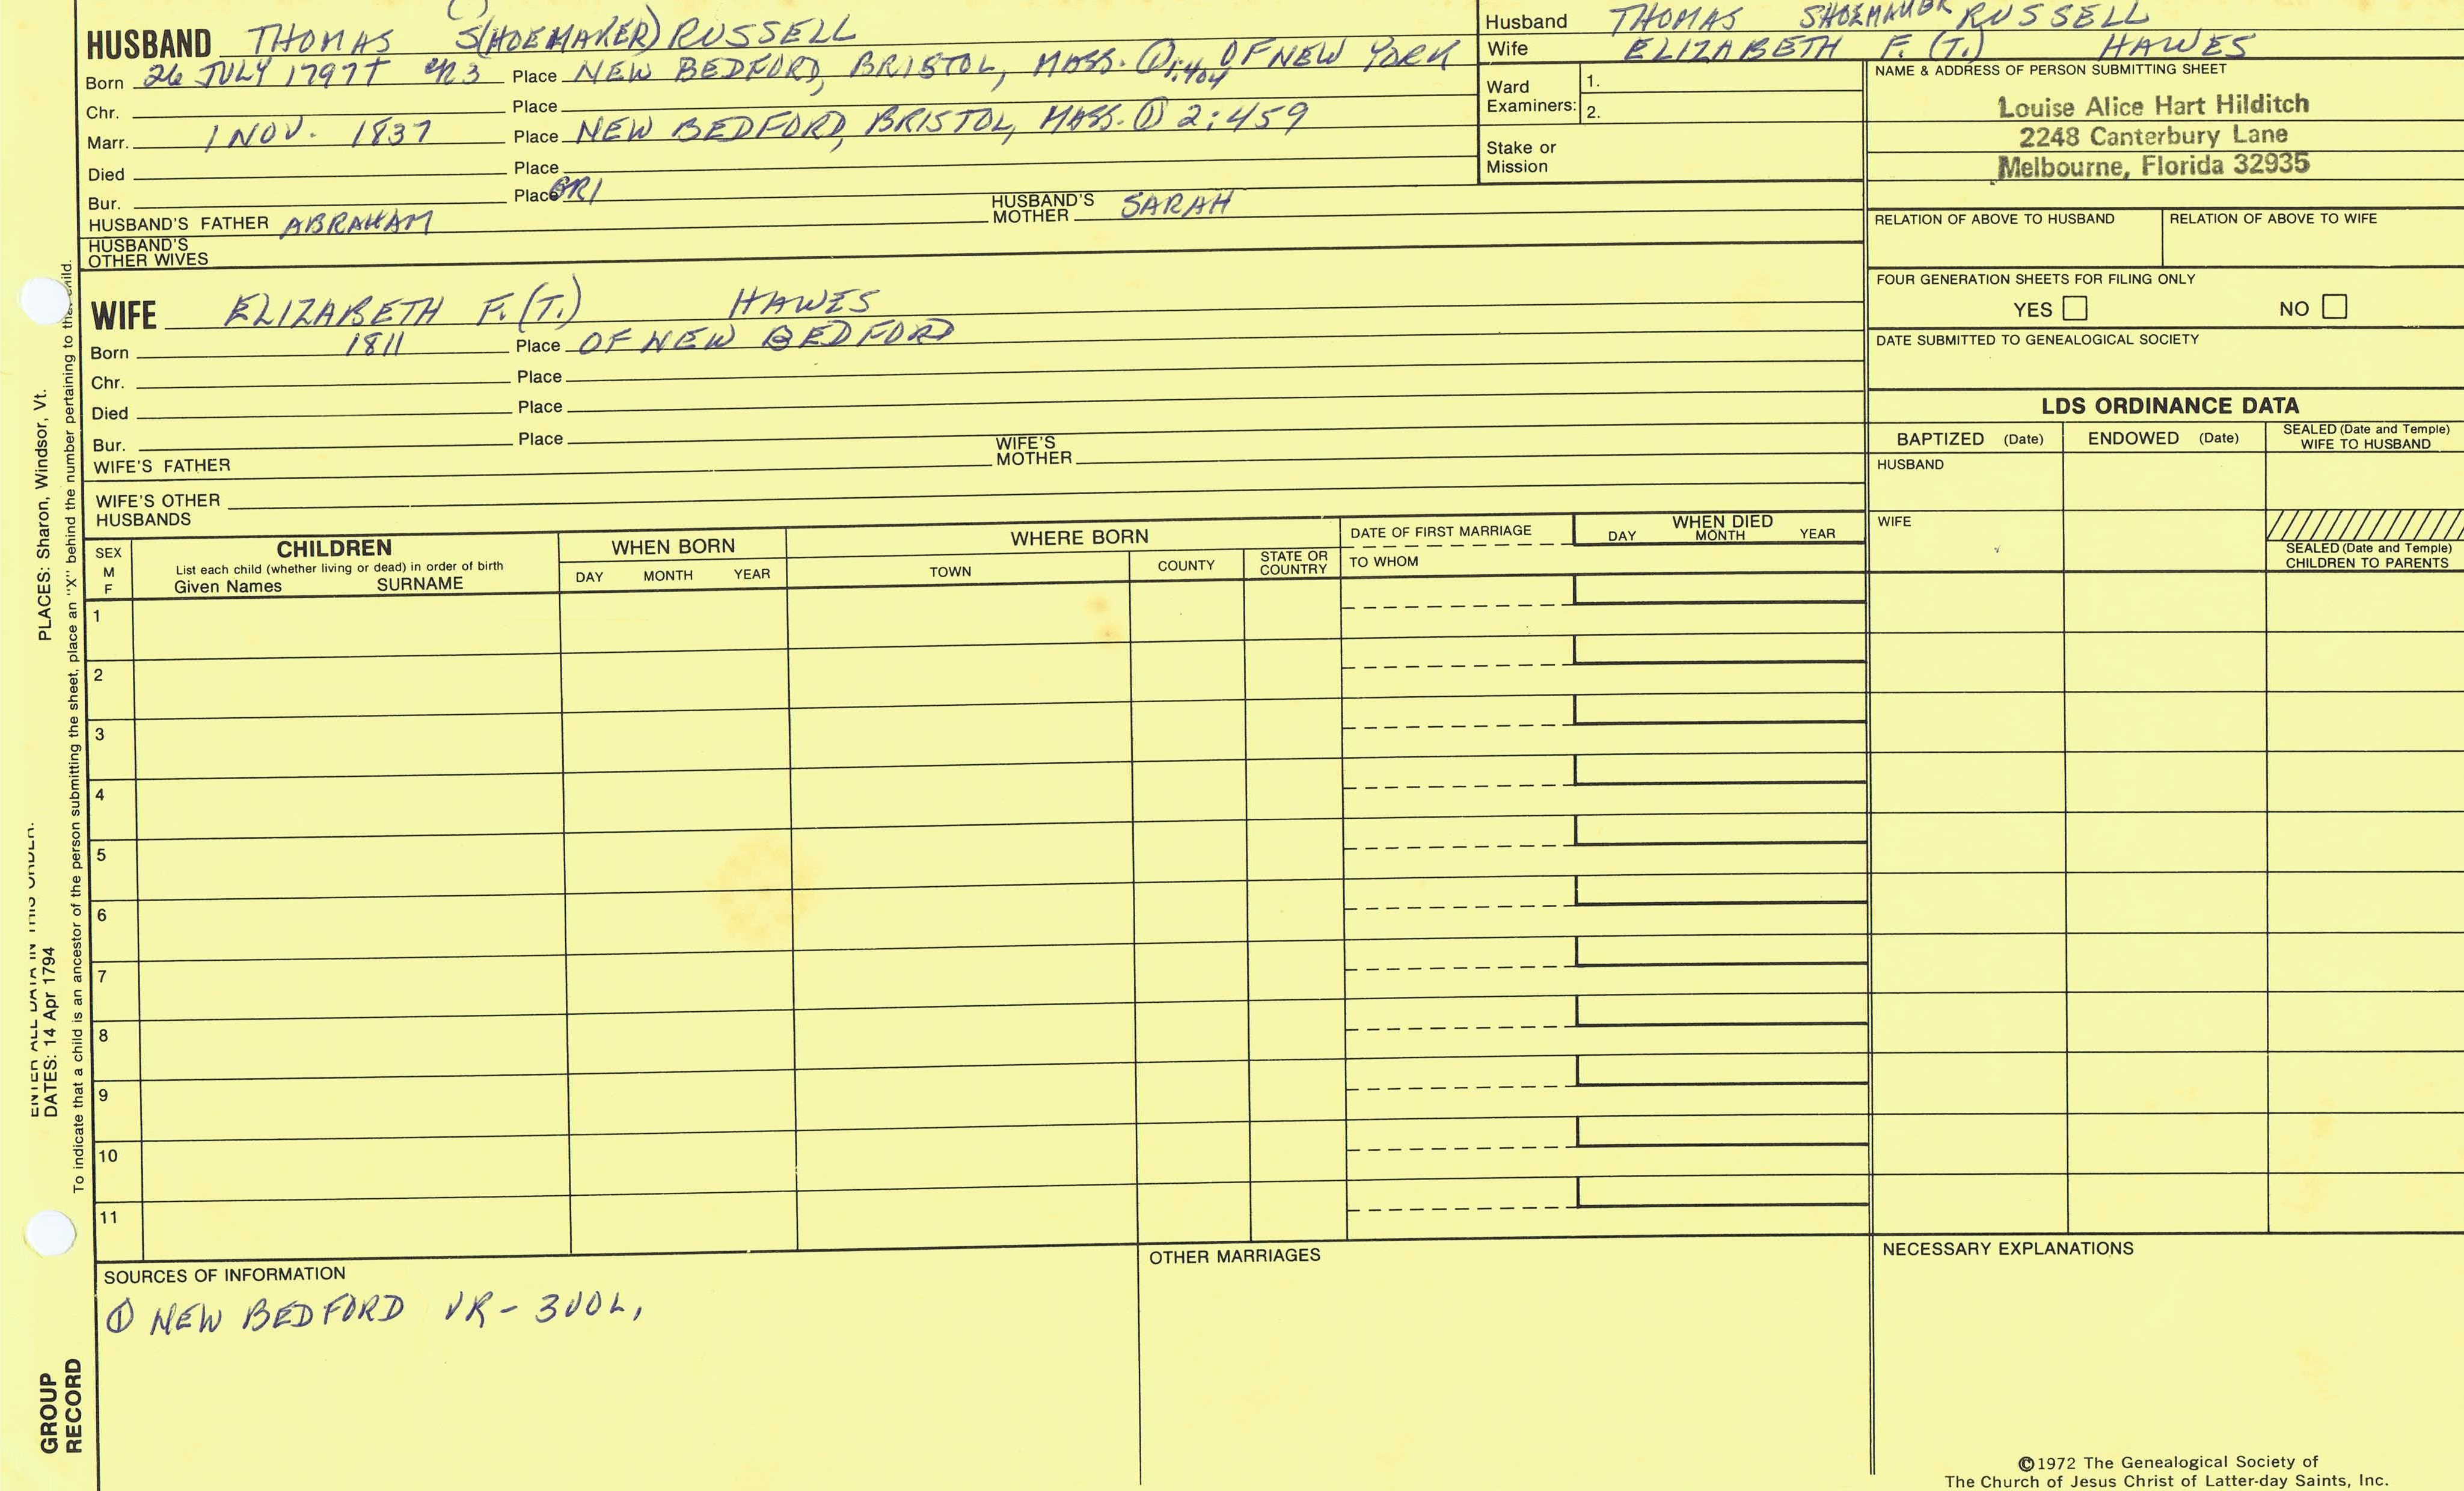 HUSBAND THOMAS S(HOEMAKER) RUSSELL
Born 26 JULY 1797† CR3 Place NEW BEDFORD, BRISTOL, MASS. ① 1:404 OF NEW YORK
Chr. Place
Marr. 1 NOV. 1837 Place NEW BEDFORD, BRISTOL, MASS. ① 2:459
Died Place
Bur. Place GR1
HUSBAND'S FATHER ABRAHAM HUSBAND'S MOTHER SARAH
HUSBAND'S OTHER WIVES
Husband THOMAS SHOEMAKER RUSSELL
Wife ELIZABETH F. (T.) HAWES
Ward Examiners: 1.
2.
Stake or Mission
NAME & ADDRESS OF PERSON SUBMITTING SHEET
Louise Alice Hart Hilditch
2248 Canterbury Lane
Melbourne, Florida 32935
RELATION OF ABOVE TO HUSBAND RELATION OF ABOVE TO WIFE
FOUR GENERATION SHEETS FOR FILING ONLY
YES NO
DATE SUBMITTED TO GENEALOGICAL SOCIETY
WIFE ELIZABETH F. (T.) HAWES
Born 1811 Place OF NEW BEDFORD
Chr. Place
Died Place
Bur. Place
WIFE'S FATHER WIFE'S MOTHER
WIFE'S OTHER HUSBANDS
LDS ORDINANCE DATA
BAPTIZED (Date) ENDOWED (Date) SEALED (Date and Temple) WIFE TO HUSBAND
HUSBAND
WIFE
SEALED (Date and Temple) CHILDREN TO PARENTS
SEX M F
CHILDREN
List each child (whether living or dead) in order of birth
Given Names SURNAME
WHEN BORN
DAY MONTH YEAR
WHERE BORN
TOWN COUNTY STATE OR COUNTRY
DATE OF FIRST MARRIAGE
TO WHOM
WHEN DIED
DAY MONTH YEAR
1
2
3
4
5
6
7
8
9
10
11
SOURCES OF INFORMATION
① NEW BEDFORD VR - 3VOL,
OTHER MARRIAGES
NECESSARY EXPLANATIONS
©1972 The Genealogical Society of
The Church of Jesus Christ of Latter-day Saints, Inc.
ENTER ALL DATA IN THIS ORDER:
DATES: 14 Apr 1794 PLACES: Sharon, Windsor, Vt.
To indicate that a child is an ancestor of the person submitting the sheet, place an "X" behind the number pertaining to the child.
GROUP
RECORD